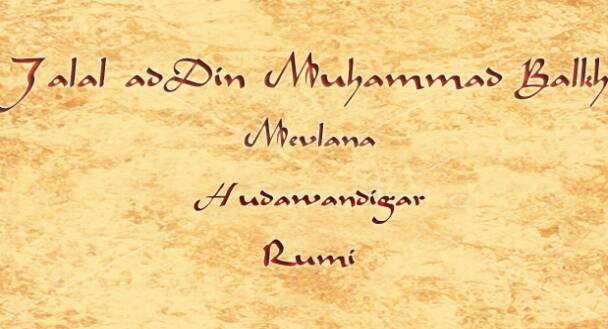 Jalal adDin Muhammad Balkh
Mevlana
Hudawandigar
Rumi